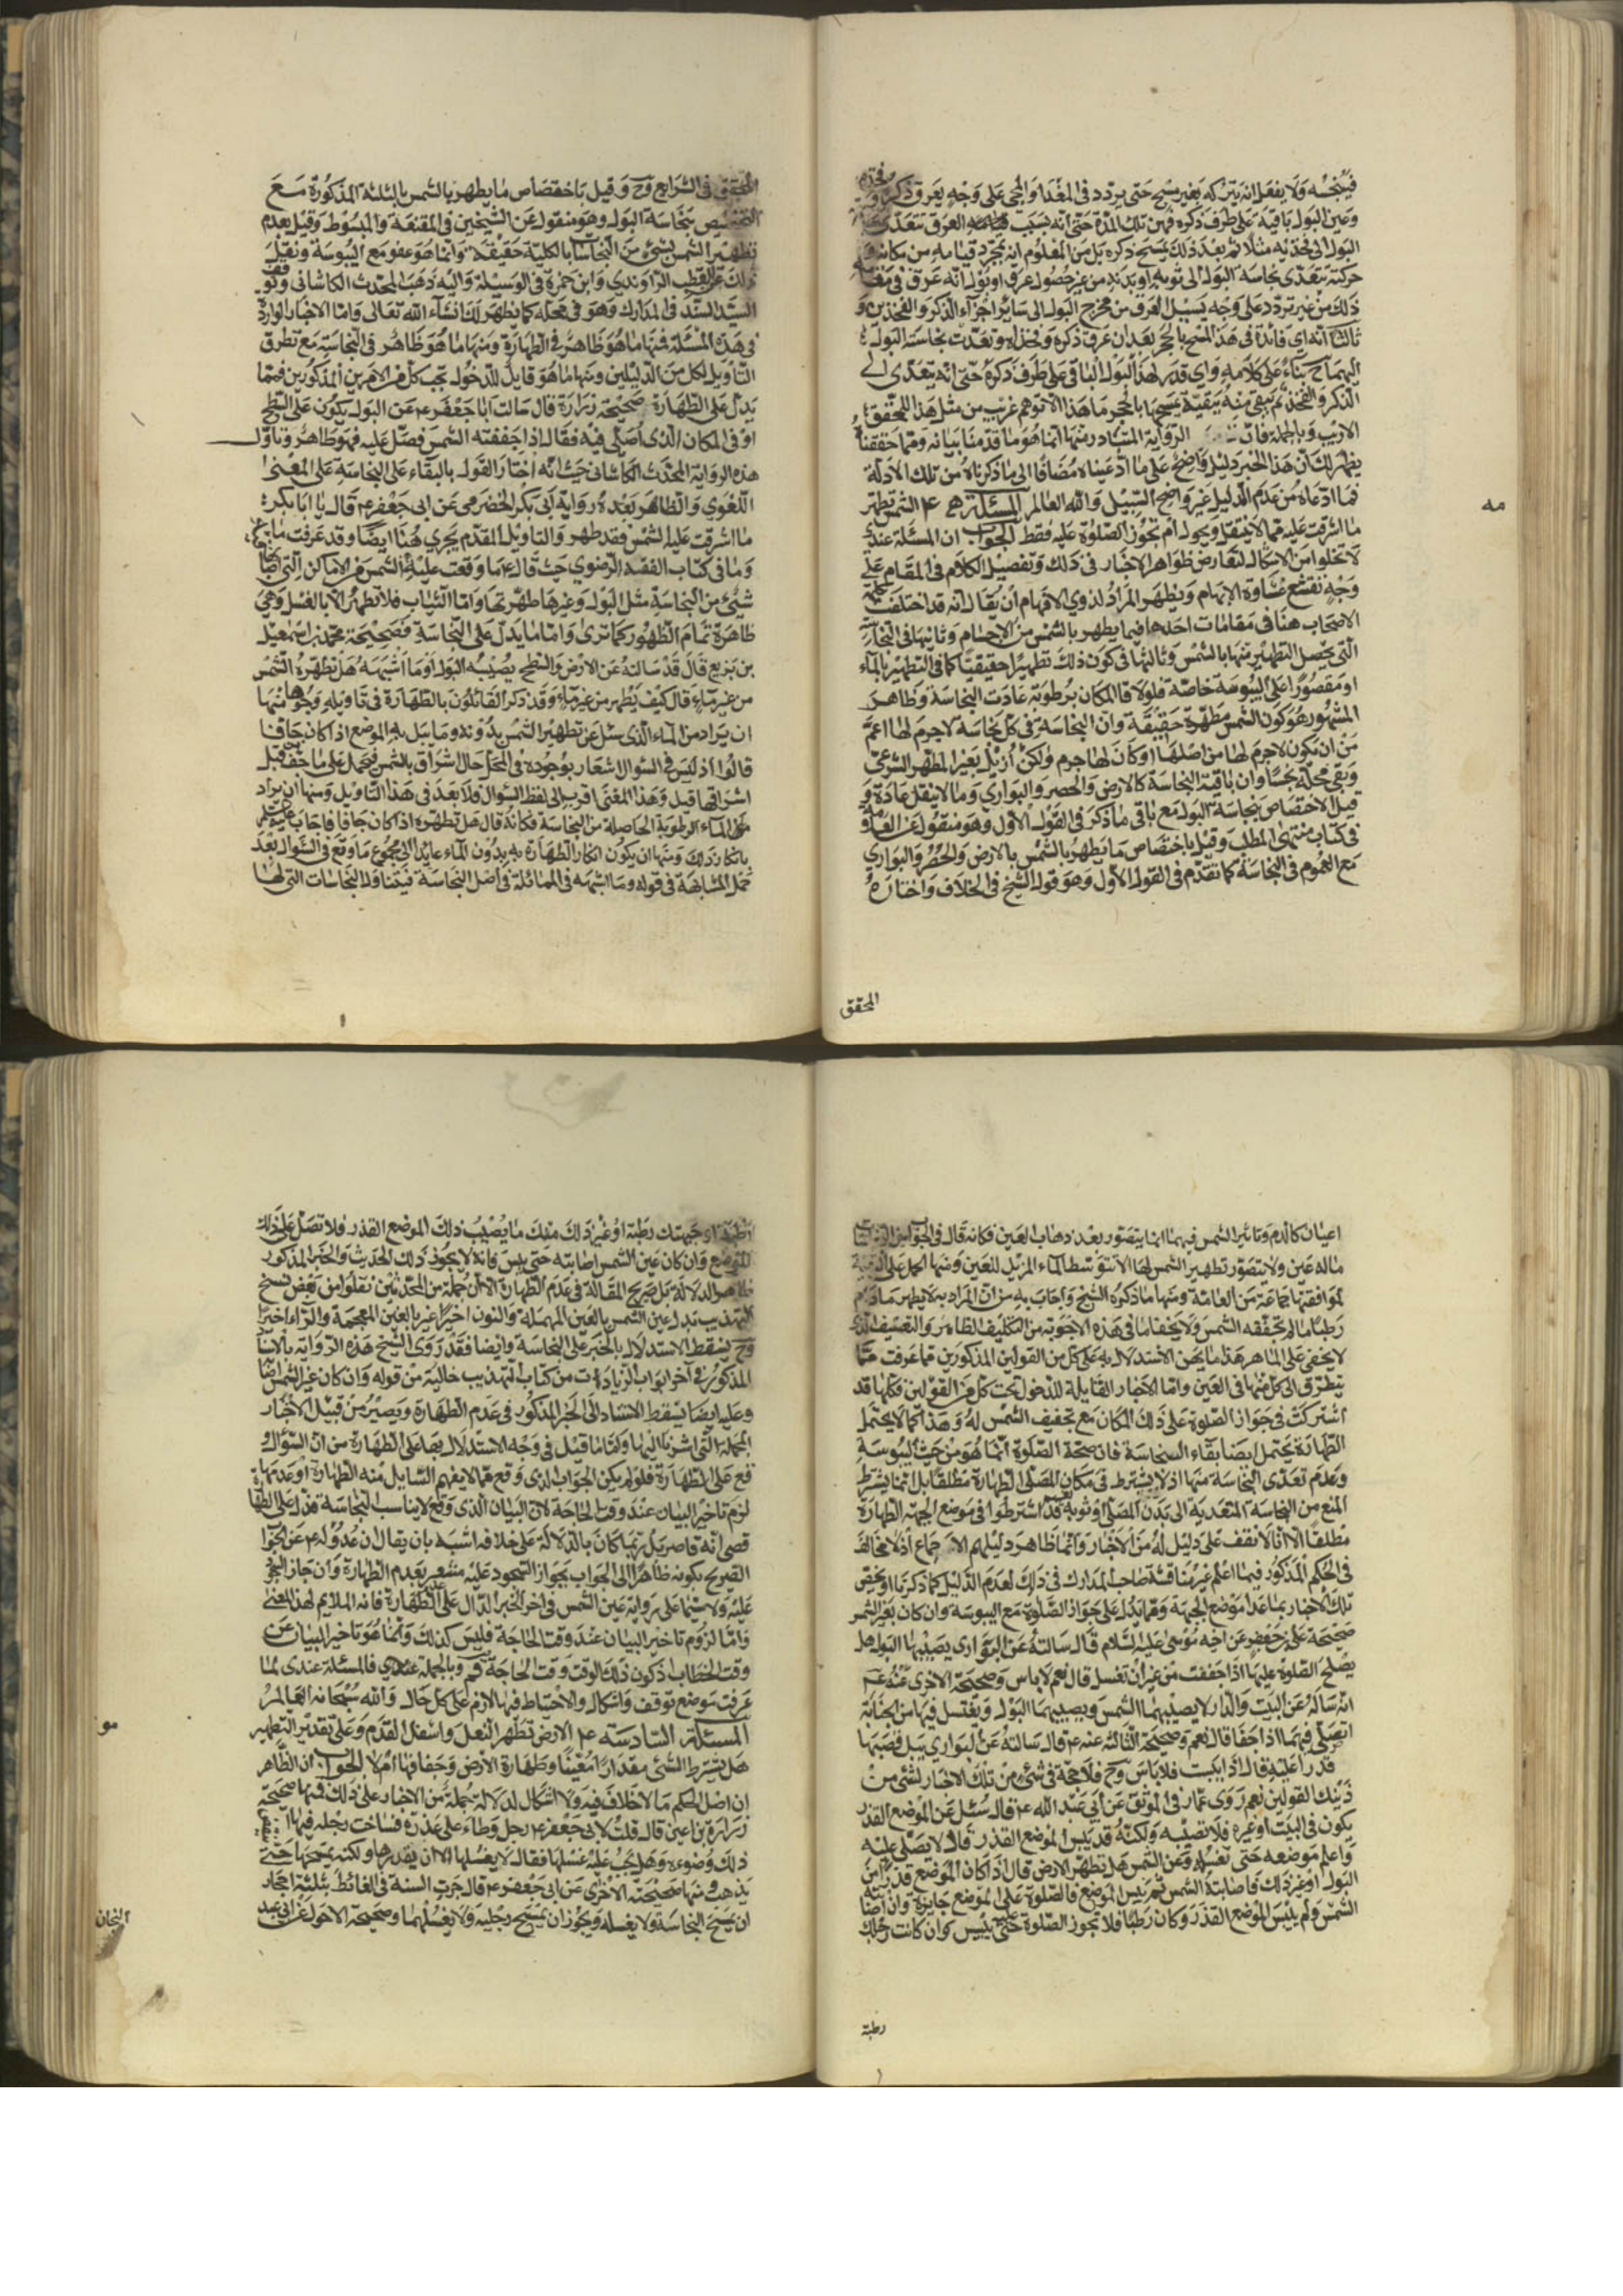 فينجسه ولا يفعل انه يتركه بغير مسح حتى يردد في المغدا والمجي على وجه يعرق ذكره
وعين البول باقية على طرف ذكره فمن تلك المدة حتى انه بسبب العرق تتعدى
البول الى فخذيه مثلا ثم بعد ذلك يمسح ذكره بل من المعلوم انه بمجرد قيامه من مكانه و
حركته تتعدى نجاسة البول الى ثوبه او بدنه من غير حصول عرق او نقول انه عرق في
ذلك من غير تردد على وجه يسيل العرق من مخرج البول الى ساير اجزاء الذكر والفخذين و
ثالثا انه اي فائدة في هذا المسح بالحجر بعد ان عرق ذكره وفخذه وتعدت نجاسة البول
اليهما ح بناء على كلامه واي قدر لهذا البول الباقي على طرف ذكره حتى انه يتعدى الى
الذكر والفخذ ثم تبقى منه بقية يمسحها بالحجر ما هذا الا توهم غريب من مثل هذا المحقق
الاريب وبالجملة فان الرواية المتبادر منها انما هو ما قدمنا بيانه ومما حققنا
يظهر لك ان هذا الخبر دليل واضح على ما ادعيناه مضافا الى ما ذكرناه من تلك الادلة
فما ادعاه من عدم الدليل غير واضح السبيل والله العالم المسئلة مه الشمس تطهر
ما اشرقت عليه مما لا ينقل ويحول ام تجوز الصلوة عليه فقط الجواب ان المسئلة عندي
لا تخلوا من الاشكال لتعارض ظواهر الاخبار في ذلك وتفصيل الكلام في المقام على
وجه تقشع غشاوة الابهام ويظهر المراد لذوي الافهام ان يقال انه قد اختلفت
الاصحاب هنا في مقامات احدها فيما يطهر بالشمس من الاجسام وثانيها في النجاسة
التي يحصل التطهير منها بالشمس وثالثها في كون ذلك تطهيرا حقيقيا كما في التطهير بالماء
او مقصورا على اليبوسة خاصة فلو لاقا المكان برطوبة عادت النجاسة وظاهر
المشهور هو كون الشمس مطهرة حقيقة وان النجاسة في كل نجاسة لا جرم لها اعم
من ان تكون لا جرم لها من اصلها او كان لها جرم ولكن ازيل بغير المطهر الشرعي
وبقى محله نجسا وان باقية النجاسة كالارض والحصر والبواري وما لا ينقل عادة و
قيل الاختصاص بنجاسة البول مع باقي ما ذكر في القول الاول وهو منقول عن العلامة
في كتاب منتهى المطلب وقيل باختصاص ما يطهر بالشمس بالارض والحصر والبواري
مع العموم في النجاسة كما تقدم في القول الاول وهو قول الشيخ في الخلاف واختاره
المحقق
مه
المحقق في الشرايع وح وقيل باختصاص ما يطهر بالشمس بالثلثة المذكورة مع
التخصيص بنجاسة البول وهو منقول عن الشيخين في المقنعة والمبسوط وقيل بعدم
تطهير الشمس لشيء من النجاسات بالكلية حقيقة وانما هو عفو مع اليبوسة ونقل
ذلك عن القطب الراوندي وابن حمزة في الوسيلة واليه ذهب المحدث الكاشاني
السيد السند في المدارك وهو في محله كما يظهر لك انشاء الله تعالى واما الاخبار الواردة
في هذه المسئلة فمنها ما هو ظاهر في الطهارة ومنها ما هو ظاهر في النجاسة مع تطرق
التاويل لكل من الدليلين ومنها ما هو قابل للدخول تحت كل من الامرين المذكورين فمما
يدل على الطهارة صحيحة زرارة قال سالت ابا جعفر ع عن البول يكون على السطح
او في المكان الذي اصلى فيه فقال اذا جففته الشمس فصل عليه فهو طاهر وتاول
هذه الرواية المحدث الكاشاني حيث انه اختار القول بالبقاء على النجاسة على المعنى
اللغوي والظاهر بعده رواية ابى بكر الحضرمي عن ابى جعفر ع قال يا ابا بكر
ما اشرقت عليه الشمس فقد طهر والتاويل المقدم يجري هنا ايضا وقد عرفت
وما في كتاب الفقه الرضوي حيث قال ع ما وقعت عليه الشمس من الاماكن التي اصابها
شيئ من النجاسة مثل البول وغيرها طهرتها واما الثياب فلا تطهر الا بالغسل وهي
ظاهرة تمام الظهور كما ترى واما ما يدل على النجاسة فصحيحة محمد بن اسمعيل
بن بزيع قال قد سالته عن الارض والسطح يصيبه البول او ما اشبهه هل تطهره الشمس
من غير ماء قال كيف يطهر من غير ماء وقد ذكر القائلون بالطهارة في تاويله وجوها منها
ان يراد من الماء الذي سئل عن تطهير الشمس بدونه وما يبل به الموضع اذا كان جافا
قالوا اذ ليس في السؤال اشعار بوجوده في المحل حال اشراق بالشمس فيحمل على ما جف قبل
اشراقها قبل وهذا المعنى اقرب الى لفظ السؤال فلا بعد في هذا التاويل ومنها ان يراد
من الماء الرطوبة الحاصلة من النجاسة فكانه قال هل تطهره اذا كان جافا فاجاب عليه السلام
بانكار ذلك ومنها ان يكون انكار الطهارة به بدون الماء عايدا الى مجموع ما وقع في السؤال بعد
حمل المشابهة في قوله وما اشبهه في المماثلة في اصل النجاسة فيتناول النجاسات التي لها
اعيان كالدم وتاثير الشمس فيهما انما يتصور بعد ذهاب العين فكانه قال في الجواب
ماله عين ولا تتصور تطهير الشمس لها الا بتوسط الماء المزيل للعين ومنها الحمل على التقية
لموافقتها جماعة من العامة ومنها ما ذكره الشيخ واجاب به من ان المراد به لا يطهر ما دام
رطبا ما لم تجففه الشمس ولا يخفا ما في هذه الاجوبة من التكليف الظاهر والتعسف الذي
لا يخفى على الماهر هذا ما يمكن الاستدلال به على كل من القولين المذكورين قد عرفت ما
يتطرق الى كل منها في العين واما الاخبار القابلة للدخول تحت كل من القولين فكلها قد
اشتركت في جواز الصلوة على ذلك المكان مع تجفيف الشمس له وهذا كما لا يحتمل
الطهارة يحتمل ايضا بقاء النجاسة فان صحة الصلوة انما هو من حيث اليبوسة
وعدم تعدى النجاسة منها اذ لا يشترط في مكان المصلى الطهارة مطلقا بل انما يشترط
المنع من النجاسة المتعدية الى بدن المصلى او ثوبه قد اشترطوا في موضع الجبهة الطهارة
مطلقا الا انا لا نقف على دليل له من الاخبار وانما ظاهر دليلهم الاجماع اذ لا مخالف
في الحكم المذكور فيما اعلم غير مناقشة صاحب المدارك في ذلك لعدم الدليل كما ذكرنا او يخص
تلك الاخبار بما عدا موضع الجبهة ومما يدل على جواز الصلوة مع اليبوسة وان كان بغير الشمس
صحيحة على بن جعفر عن اخيه موسى عليه السلام قال سالته عن البواري يصيبها البول هل
يصلح الصلوة عليها اذا جففت من غير ان تغسل قال نعم لا باس وصحيحة الاخرى عنه ع
انه ساله عن البيت والدار لا يصيبهما الشمس ويصيبهما البول ويغتسل فيها من الجنابة
ايصلى فيهما اذا جفا قال نعم وصحيحة الثالثة عنه ع قال سالته عن البواري يبل قصبها
قذرا عليه قال اذا يبست فلا باس وح فلا حجة في شئ من تلك الاخبار لشئ من
ذينك القولين نعم روى عمار في الموثق عن ابى عبد الله ع قال سئل عن الموضع القذر
يكون في البيت او غيره فلا تصيبه ولكنه قد يبس الموضع القذر قال لا تصلى عليه
واعلم موضعه حتى تغسله وعن الشمس هل تطهر الارض قال اذا كان الموضع قذرا من
البول او غير ذلك فاصابته الشمس ثم يبس الموضع فالصلوة على الموضع جايزة وان اصابته
الشمس ولم ييبس الموضع القذر وكان رطبا فلا تجوز الصلوة حتى ييبس وان كانت رجلك
رطبة
رطبة او جبهتك رطبة او غير ذلك منك ما يصيب ذلك الموضع القذر فلا تصل على ذلك
الموضع وان كان عين الشمس اصابته حتى يبس فانه لا يجوز ذلك الحديث والخبر المذكور
ظاهر الدلالة بل صريح المقالة في عدم الطهارة الا ان جملة من المحدثين نقلوا من بعض نسخ
التهذيب بدل عين الشمس بالعين المهملة والنون اخيرا غير بالغين المعجمة والراء اخيرا
وح يسقط الاستدلال بالخبر على النجاسة وايضا فقد روى الشيخ هذه الرواية بالاسناد
المذكور في آخر ابواب الزيادات من كتاب التهذيب خالية من قوله وان كان غير الشمس
وعليه ايضا يسقط الاستناد الى الخبر المذكور في عدم الطهارة ويصير من قبيل الاخبار
المجملة التي اشرنا اليها وكلما قيل في وجه الاستدلال بها على الطهارة من ان السؤال و
قع على الطهارة فلو لم يكن الجواب الذي وقع مما لا يفهم السايل منه الطهارة او عدمها
لزم تاخير البيان عند وقت الحاجة لان البيان الذي وقع لا يناسب النجاسة فدل على الطهارة
قصى انه قاصر بل ربما كان بالدلالة على خلافه اشبه بان يقال ان عدوله ع عن الجواب
الصريح بكونه ظاهرا الى الجواب بجواز السجود عليه مشعر بعدم الطهارة وان جاز السجود
عليه ولا سيما على رواية عين الشمس في اخر الخبر الدال على الطهارة فانه الملايم لهذا المعنى
واما لزوم تاخير البيان عند وقت الحاجة فليس كذلك وانما هو تاخير البيان عن
وقت الخطاب ذكون ذلك الوقت وقت الحاجة وبالجملة عندي فالمسئلة عندى لما
عرفت موضع توقف واشكال والاحتياط فيها لازم على كل حال والله سبحانه العالم
المسئلة السادسة ع الارض تطهر النعل واسفل القدم وعلى تقدير التطهير
هل يشترط المشى مقدارا معينا وطهارة الارض وجفافها ام لا الجواب ان الظاهر
ان اصل الحكم ما لا خلاف فيه ولا اشكال لدلالة جملة من الاخبار على ذلك فمنها صحيحة
زرارة بن اعين قال قلت لابى جعفر ع رجل وطاء على عذرة فساخت رجله فيها
ذلك وضوءه وهل يجب عليه غسلها فقال لا يغسلها الا ان يقذرها ولكنه يمسحها حتى
يذهب ومنها صحيحته الاخرى عن ابى جعفر ع قال جرت السنة في الغائط بثلثة احجار
ان يمسح النجاسة ولا يغسله ويجوز ان يمسح رجليه ولا يغسلهما وصحيحة الاحول عن ابى عبد
مو